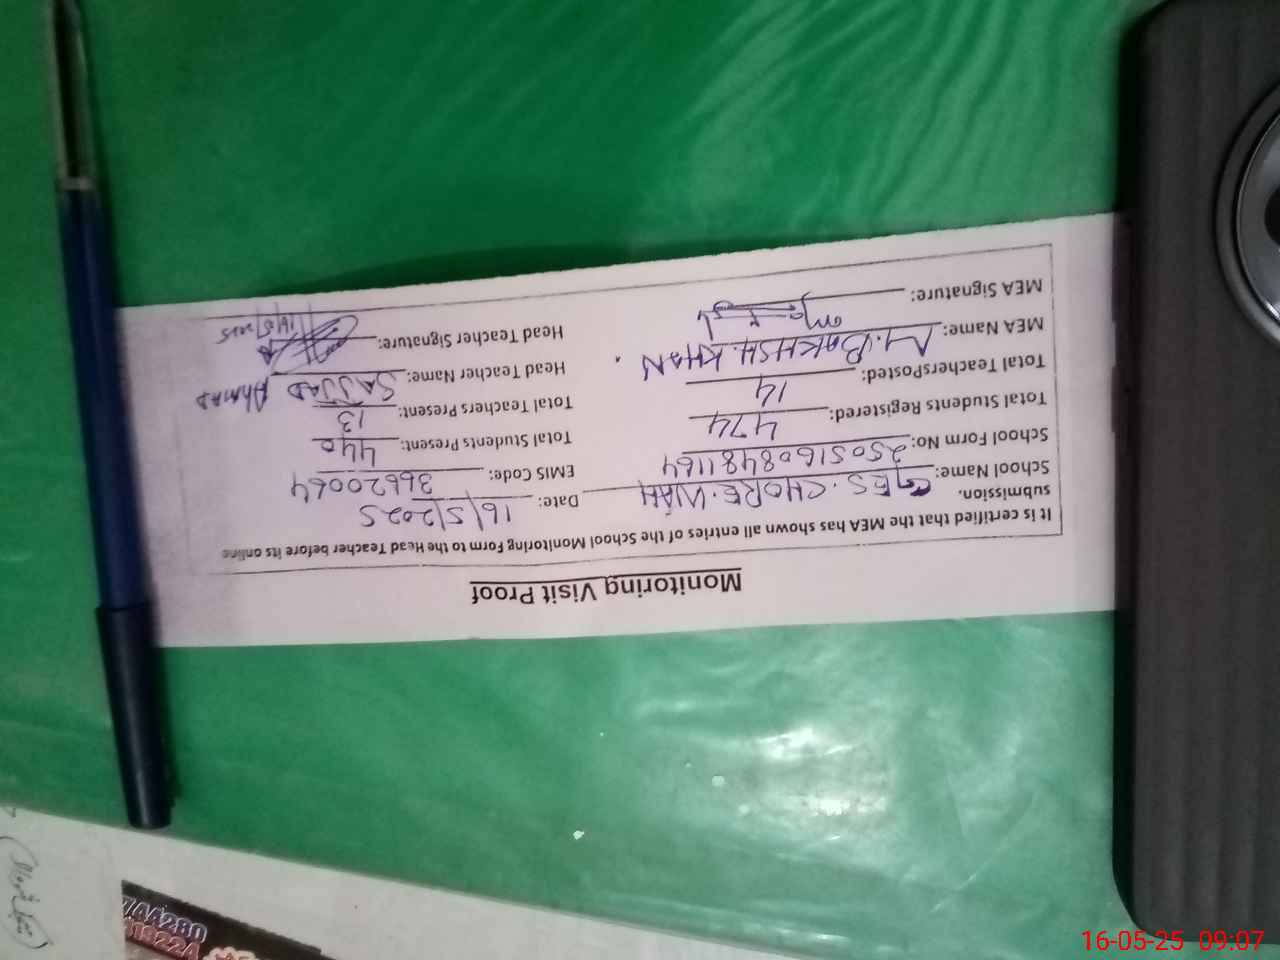 Monitoring Visit Proof
It is certified that the MEA has shown all entries of the School Monitoring Form to the Head Teacher before its online
submission.
School Name: GES. CHORE. WAH Date: 16/5/2025
School Form No: 25051608481164 EMIS Code: 36620064
Total Students Registered: 474 Total Students Present: 440
Total TeachersPosted: 14 Total Teachers Present: 13
MEA Name: M. BAKHSH. KHAN. Head Teacher Name: SAJJAD Ahmad
MEA Signature: Head Teacher Signature: 16/5/2025
744280
16-05-25 09:07